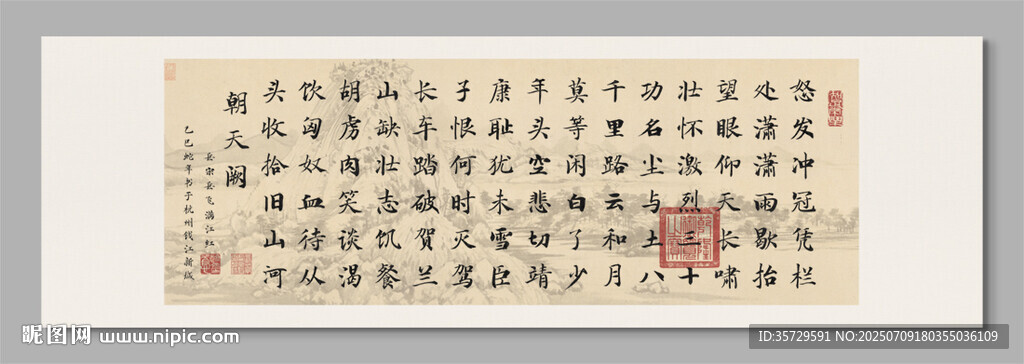 怒发冲冠凭栏
处潇潇雨歇抬
望眼仰天长啸
壮怀激烈三十
功名尘与土八
千里路云和月
莫等闲白了少
年头空悲切靖
康耻犹未雪臣
子恨何时灭驾
长车踏破贺兰
山缺壮志饥餐
胡虏肉笑谈渴
饮匈奴血待从
头收拾旧山河
朝天阙
宋岳飞满江红
乙巳蛇年书于杭州钱江新城
昵图网 www.nipic.com
ID:35729591 NO:20250709180355036109